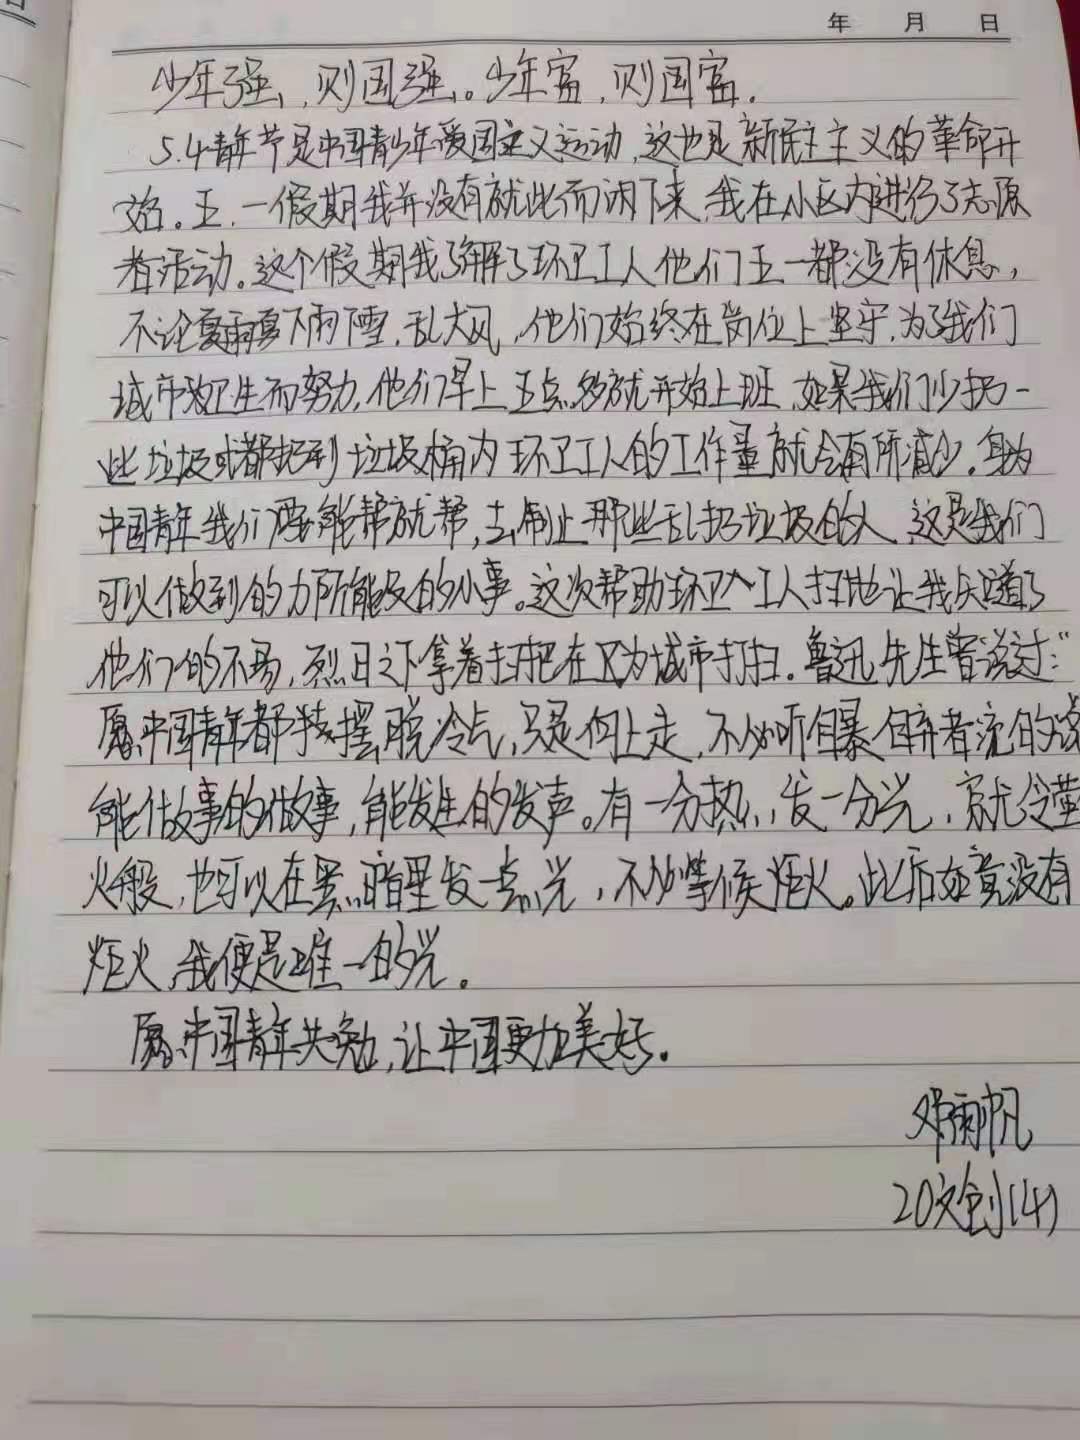 年 月 日
少年强，则国强。少年富，则国富.
5.4青年节是中国青少年爱国主义运动，这也是新民主主义的革命开
始。五.一假期我并没有就此而闲下来，我在小区内进行了志愿
者活动。这个假期我了解了环卫工人他们五一都没有休息，
不论下雨下雪，乱大风，他们始终在岗位上坚守，为了我们
城市卫生而努力，他们早上五点多就开始上班，如果我们少扔一
些垃圾或都扔到垃圾桶内环卫工人的工作量就会有所减少。身为
中国青年我们要能帮就帮，去制止那些乱扔垃圾的人，这是我们
可以做到的力所能及的小事。这次帮助环卫工人扫地让我知道了
他们的不易，烈日之下拿着扫把在为城市打扫。鲁迅先生曾说过："
愿中国青年都摆脱冷气，只是向上走，不必听自暴自弃者流的话
能做事的做事，能发生的发声。有一分热，发一分光，就令萤
火般，也可以在黑暗里发一点光，不必等候炬火。此后如竟没有
炬火，我便是唯一的光。
愿中国青年共勉，让中国更加美好。
邓雨帆
20文创(4)